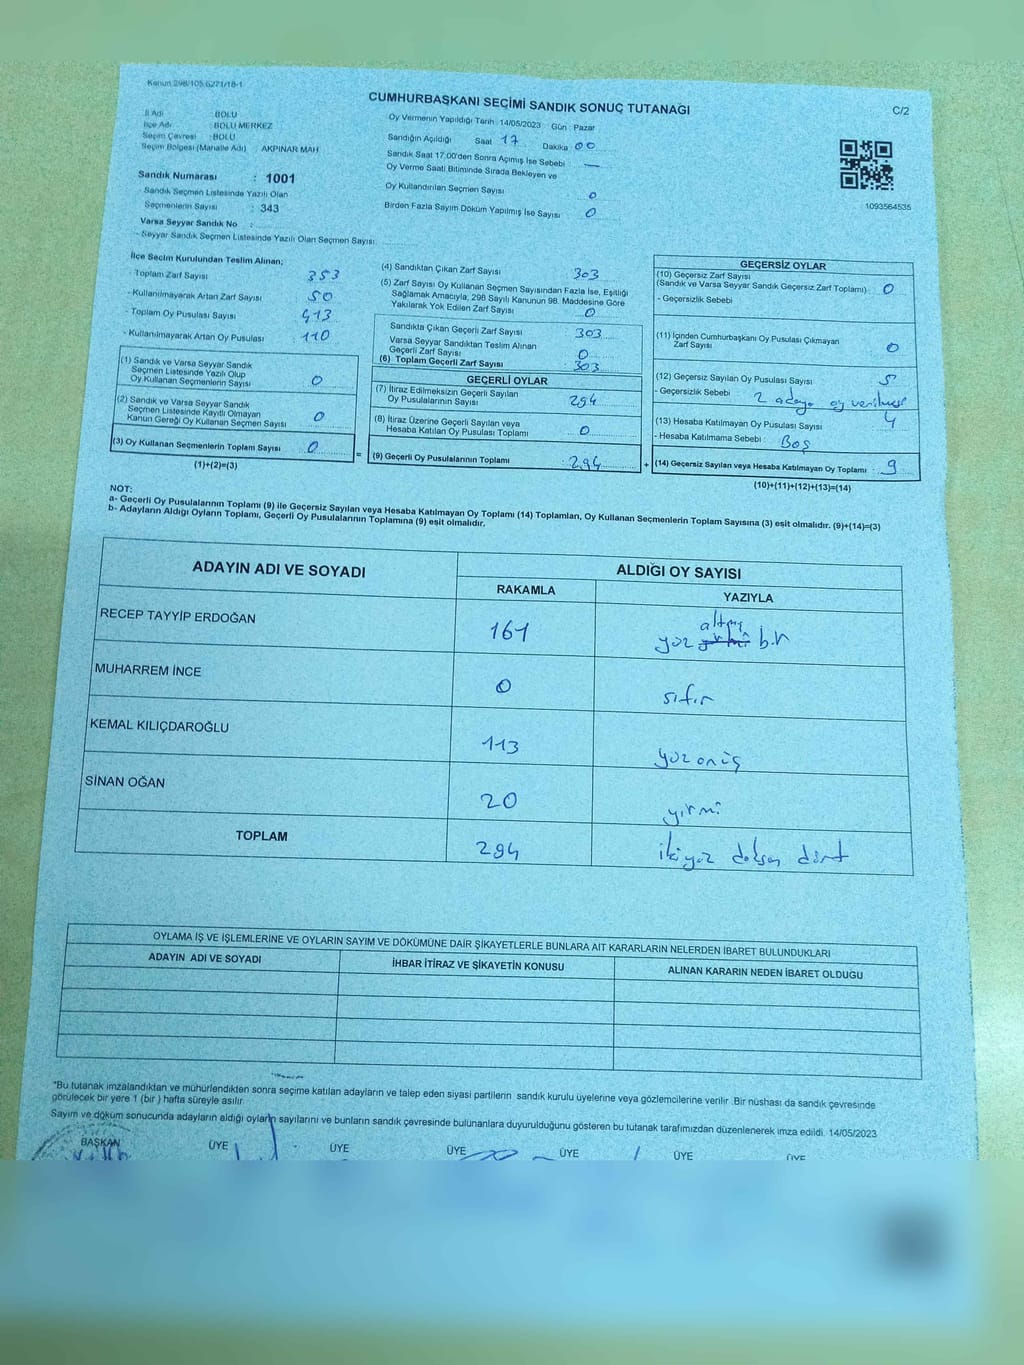 Kanun 298/105 6271/18-1
CUMHURBAŞKANI SEÇİMİ SANDIK SONUÇ TUTANAGI
C/2
İl Adı : BOLU
İlçe Adı : BOLU MERKEZ
Seçim Çevresi : BOLU
Seçim Bölgesi (Mahalle Adı) AKPINAR MAH
Sandık Numarası : 1001
Sandık Seçmen Listesinde Yazılı Olan
Seçmenlerin Sayısı : 343
Varsa Seyyar Sandık No :
- Seyyar Sandık Seçmen Listesinde Yazılı Olan Seçmen Sayısı:
Oy Vermenin Yapıldığı Tarih : 14/05/2023 Gün : Pazar
Sandığın Açıldığı Saat 17 Dakika 00
Sandık Saat 17:00'den Sonra Açımış İse Sebebi : —
Oy Verme Saati Bitiminde Sırada Bekleyen ve
Oy Kullandırılan Seçmen Sayısı 0
Birden Fazla Sayım Döküm Yapılmış İse Sayısı 0
1093564535
İlçe Seçim Kurulundan Teslim Alınan;
- Toplam Zarf Sayısı 353
- Kullanılmayarak Artan Zarf Sayısı 50
- Toplam Oy Pusulası Sayısı 413
- Kullanılmayarak Artan Oy Pusulası 110
(1) Sandık ve Varsa Seyyar Sandık
Seçmen Listesinde Yazılı Olup
Oy Kullanan Seçmenlerin Sayısı 0
(2) Sandık ve Varsa Seyyar Sandık
Seçmen Listesinde Kayıtlı Olmayan
Kanun Gereği Oy Kullanan Seçmen Sayısı 0
(3) Oy Kullanan Seçmenlerin Toplam Sayısı 0
(1)+(2)=(3)
(4) Sandıktan Çıkan Zarf Sayısı 303
(5) Zarf Sayısı Oy Kullanan Seçmen Sayısından Fazla İse, Eşitliği
Sağlamak Amacıyla, 298 Sayılı Kanunun 98. Maddesine Göre
Yakılarak Yok Edilen Zarf Sayısı 0
Sandıkta Çıkan Geçerli Zarf Sayısı 303
Varsa Seyyar Sandıktan Teslim Alınan
Geçerli Zarf Sayısı 0
(6) Toplam Geçerli Zarf Sayısı 303
GEÇERLİ OYLAR
(7) İtiraz Edilmeksizin Geçerli Sayılan
Oy Pusulalarının Sayısı 294
(8) İtiraz Üzerine Geçerli Sayılan veya
Hesaba Katılan Oy Pusulası Toplamı 0
=
(9) Geçerli Oy Pusulalarının Toplamı 294
+
GEÇERSİZ OYLAR
(10) Geçersiz Zarf Sayısı
(Sandık ve Varsa Seyyar Sandık Geçersiz Zarf Toplamı) 0
- Geçersizlik Sebebi
(11) İçinden Cumhurbaşkanı Oy Pusulası Çıkmayan
Zarf Sayısı 0
(12) Geçersiz Sayılan Oy Pusulası Sayısı 5
- Geçersizlik Sebebi 2 adaya oy verilmesi
(13) Hesaba Katılmayan Oy Pusulası Sayısı 4
- Hesaba Katılmama Sebebi : Boş
(14) Geçersiz Sayılan veya Hesaba Katılmayan Oy Toplamı : 9
(10)+(11)+(12)+(13)=(14)
NOT:
a- Geçerli Oy Pusulalarının Toplamı (9) ile Geçersiz Sayılan veya Hesaba Katılmayan Oy Toplamı (14) Toplamları, Oy Kullanan Seçmenlerin Toplam Sayısına (3) eşit olmalıdır. (9)+(14)=(3)
b- Adayların Aldığı Oyların Toplamı, Geçerli Oy Pusulalarının Toplamına (9) eşit olmalıdır.
ADAYIN ADI VE SOYADI
ALDIĞI OY SAYISI
RAKAMLA
YAZIYLA
RECEP TAYYİP ERDOĞAN 161 yüz altmış bir
MUHARREM İNCE 0 sıfır
KEMAL KILIÇDAROĞLU 113 yüz onüç
SİNAN OĞAN 20 yirmi
TOPLAM 294 ikiyüz doksan dört
OYLAMA İŞ VE İŞLEMLERİNE VE OYLARIN SAYIM VE DÖKÜMÜNE DAİR ŞİKAYETLERLE BUNLARA AIT KARARLARIN NELERDEN İBARET BULUNDUKLARI
ADAYIN ADI VE SOYADI
İHBAR İTİRAZ VE ŞİKAYETİN KONUSU
ALINAN KARARIN NEDEN İBARET OLDUGU
"Bu tutanak imzalandıktan ve mühürlendikten sonra seçime katılan adayların ve talep eden siyasi partilerin sandık kurulu üyelerine veya gözlemcilerine verilir .Bir nüshası da sandık çevresinde
görülecek bir yere 1 (bir ) hafta süreyle asılır.
Sayım ve döküm sonucunda adayların aldığı oyların sayılarını ve bunların sandık çevresinde bulunanlara duyurulduğunu gösteren bu tutanak tarafımızdan düzenlenerek imza edildi. 14/05/2023
BAŞKAN ÜYE ÜYE ÜYE ÜYE ÜYE ÜYE